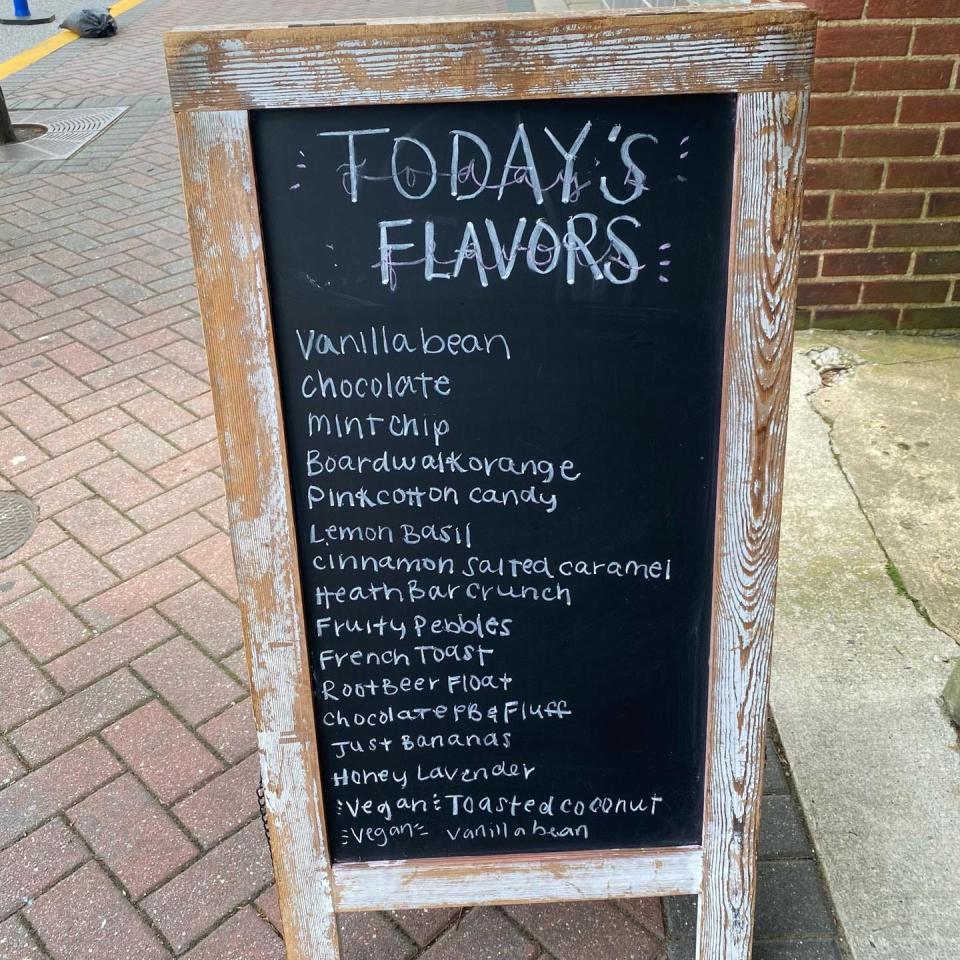 TODAY'S
FLAVORS
Vanilla bean
Chocolate
Mint chip
Boardwalk orange
Pink cotton candy
Lemon Basil
Cinnamon Salted caramel
Heath Bar Crunch
Fruity Pebbles
French Toast
Root Beer Float
Chocolate PB & Fluff
Just Bananas
Honey Lavender
Vegan Toasted coconut
Vegan vanilla bean